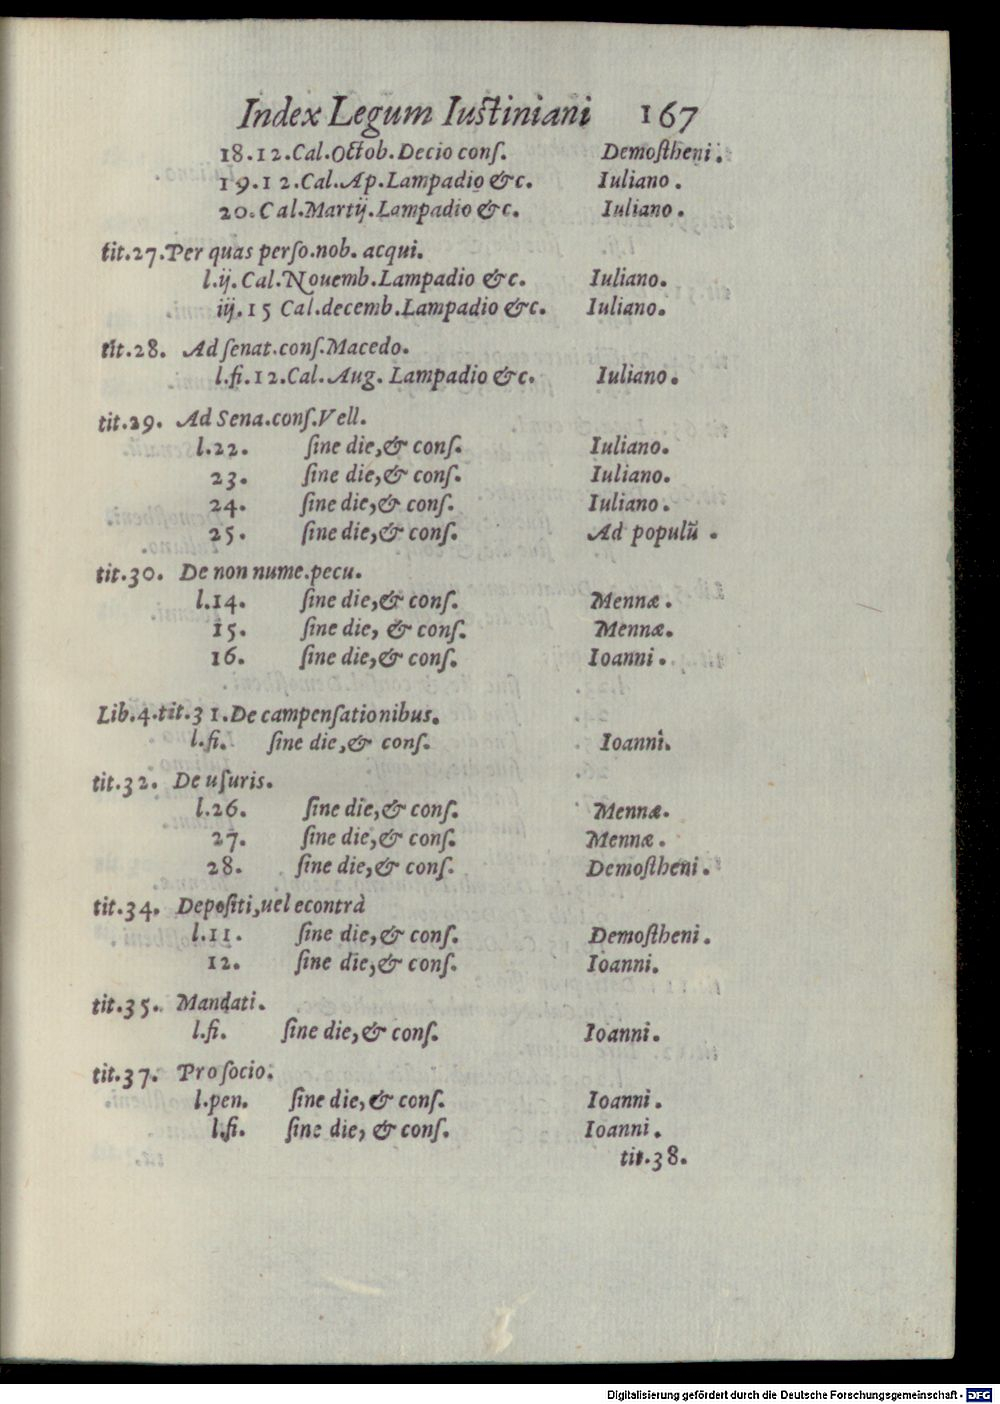 Index Legum Iustiniani 167
18.12.Cal.Octob.Decio conſ. Demoſtheni.
19.12.Cal.Ap.Lampadio &c. Iuliano.
20.Cal.Martij.Lampadio &c. Iuliano.
tit.27.Per quas perſo.nob. acqui.
l.ij. Cal.Nouemb.Lampadio &c. Iuliano.
iij.15 Cal.decemb.Lampadio &c. Iuliano.
tit.28. Ad ſenat.conſ.Macedo.
l.fi.12.Cal.Aug. Lampadio &c. Iuliano.
tit.29. Ad Sena.conſ.Vell.
l.22. ſine die,& conſ. Iuliano.
23. ſine die,& conſ. Iuliano.
24. ſine die,& conſ. Iuliano.
25. ſine die,& conſ. Ad populū.
tit.30. De non nume.pecu.
l.14. ſine die,& conſ. Mennæ.
15. ſine die, & conſ. Mennæ.
16. ſine die,& conſ. Ioanni.
Lib.4.tit.31.De campenſationibus.
l.fi. ſine die,& conſ. Ioanni.
tit.32. De uſuris.
l.26. ſine die,& conſ. Mennæ.
27. ſine die,& conſ. Mennæ.
28. ſine die,& conſ. Demoſtheni.
tit.34. Depoſiti,uel econtrà
l.11. ſine die,& conſ. Demoſtheni.
12. ſine die,& conſ. Ioanni.
tit.35. Mandati.
l.fi. ſine die,& conſ. Ioanni.
tit.37. Pro ſocio.
l.pen. ſine die,& conſ. Ioanni.
l.fi. ſine die, & conſ. Ioanni.
tit.38.
Digitalisierung gefördert durch die Deutsche Forschungsgemeinschaft - DFG